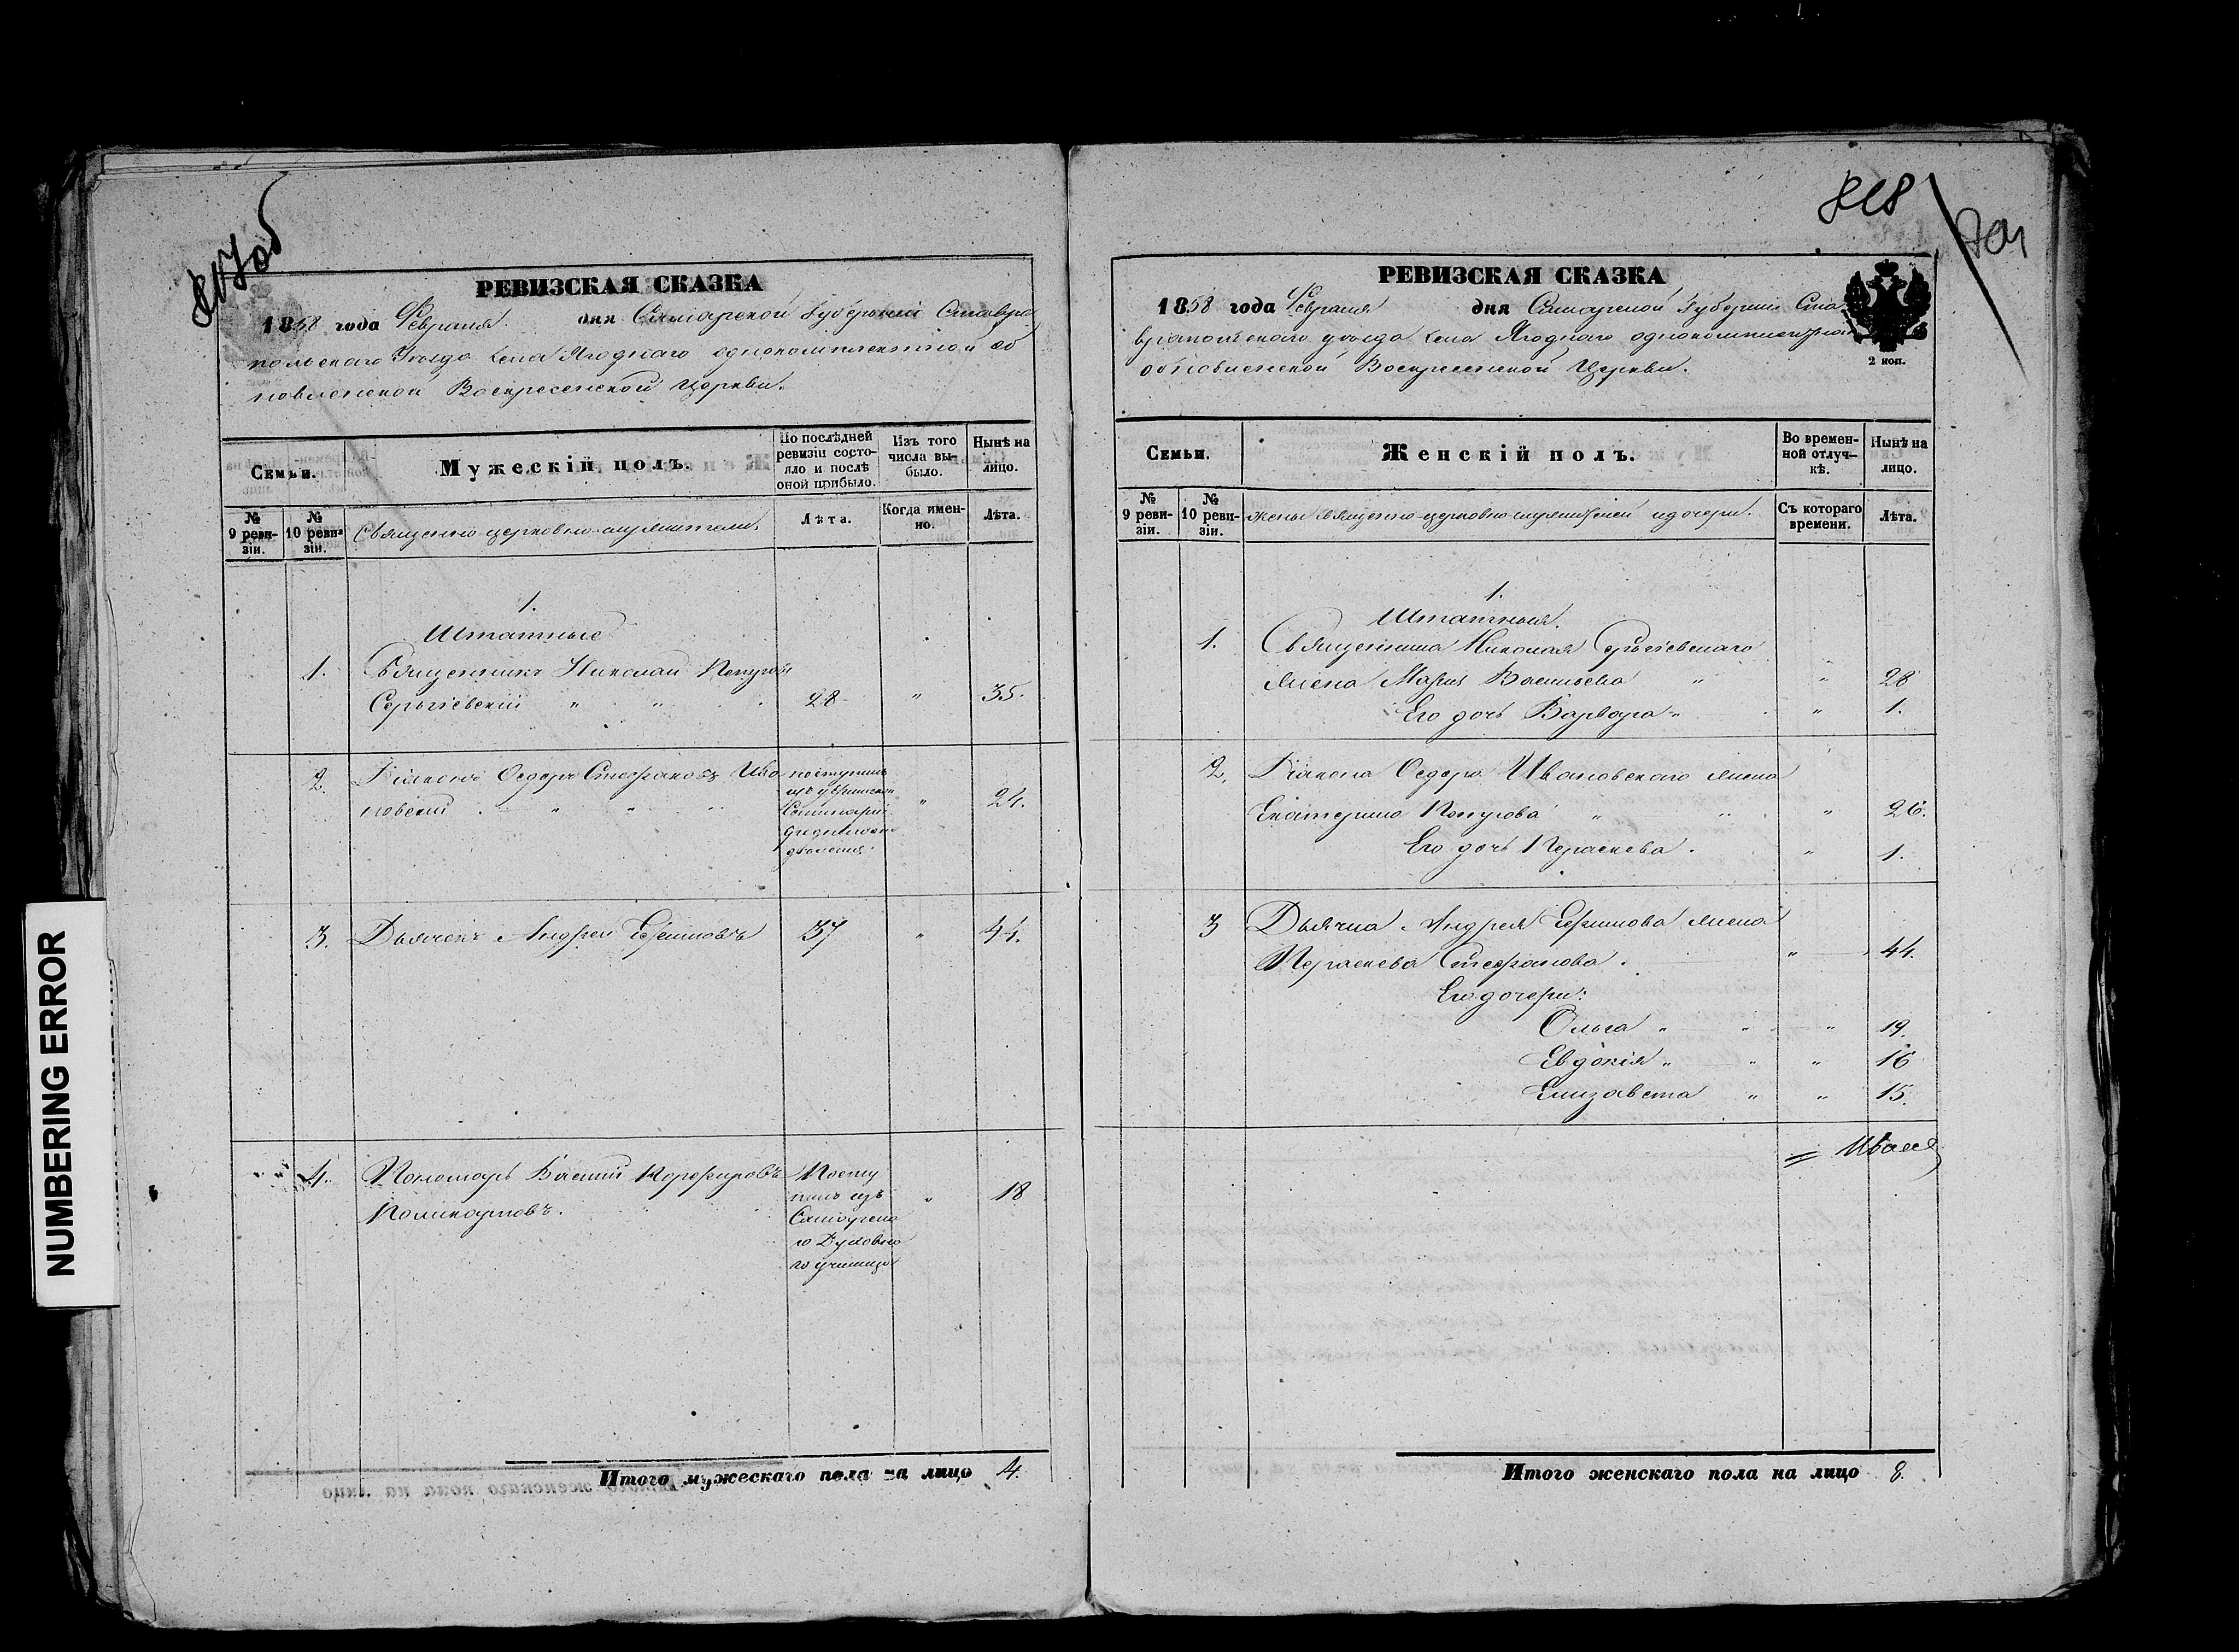 817об
РЕВИЗСКАЯ СКАЗКА
1858 года Февраля дня Самарской Губернии Ставро
польскаго Уезда села Ягоднаго однокомплектной об
новленской Воскресенской Церкви.
Семьи.
Мужескій полъ.
По послѣдней ревизіи состояло и послѣ оной прибыло.
Изъ того числа выбыло.
Нынѣ на лицо.
№ 9 ревизіи.
№ 10 ревизіи.
Священно-церковно-служители
Лѣта.
Когда именно.
Лѣта.
1.
Штатные
1. Священникъ Николай Петровъ
Сергіевскій " " 28 " 35.
2. Діаконъ Ѳедоръ Стефановъ Ива поступилъ
новскій " " " изъ " 24.
Семинаріи
3. Дьячекъ Андрей Ефимовъ 37 " 44.
4. Пономарь Василій Порфировъ Посту
Поликарповъ. пилъ изъ " 18
Самарска
го Духовна
го училища
Итого мужескаго пола на лицо 4.
818
РЕВИЗСКАЯ СКАЗКА
1858 года Февраля дня Самарской Губерніи Ста
вропольскаго уезда села Ягоднаго однокомплектной
обновленской Воскресенской Церкви.
2 коп.
Семьи.
Женскій полъ.
Во временной отлучкѣ.
Нынѣ на лицо.
№ 9 ревизіи.
№ 10 ревизіи.
Жены священно-церковно-служителей и дочери.
Съ котораго времени.
Лѣта.
1.
Штатныя.
1. Священника Николая Сергіевскаго
жена Марія Васильева " " 28
Его дочь Варвара " " 1.
2. Діакона Ѳедора Ивановскаго жена
Екатерина Петрова " " " 26.
Его дочь Параскева. " 1.
3 Дьячка Андрея Ефимова жена
Параскева Стефанова. " 44.
Его дочери:
Ольга " " " 19.
Евдокія " " " 16
Елизавета " " 15.
Итого женскаго пола на лицо 8.
NUMBERING ERROR